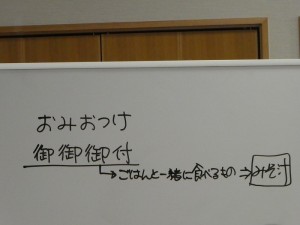 おみおつけ
御御御付
↳ごはんと一緒に食べるもの⇒みそ汁